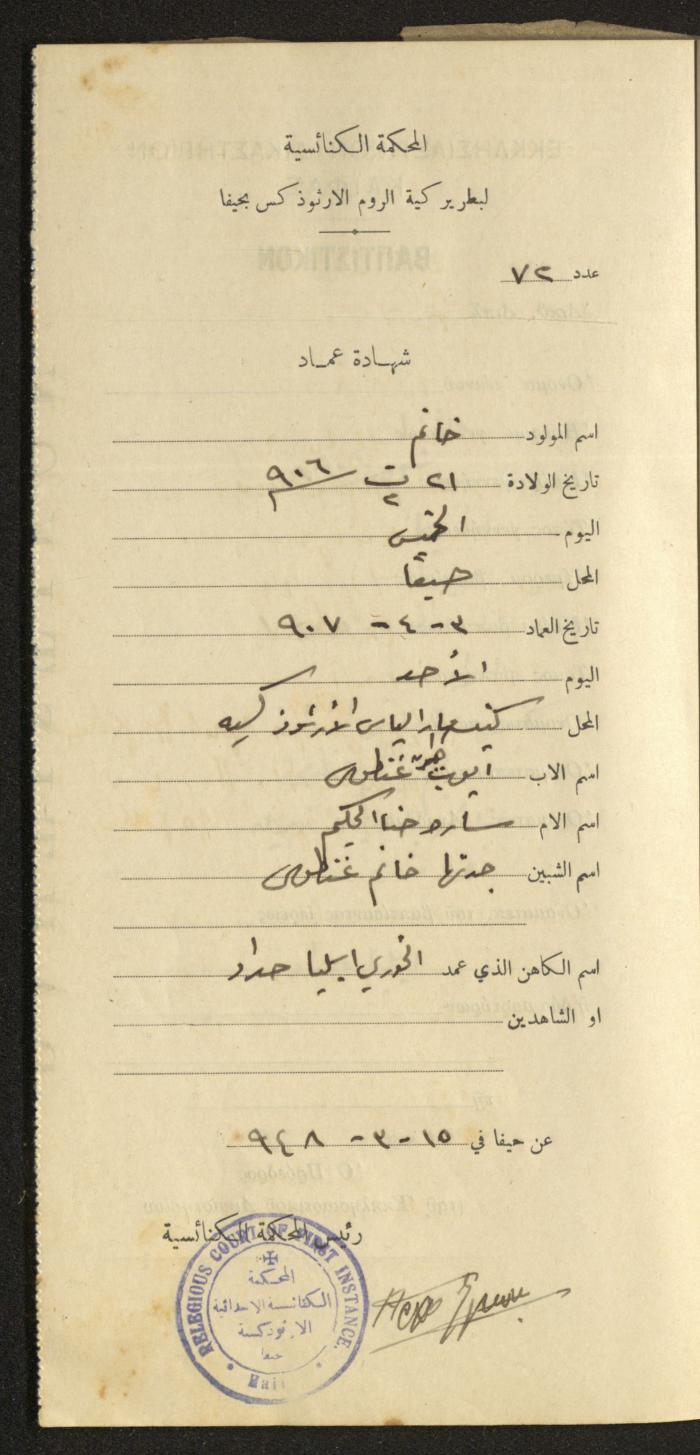 المحكمة الكنائسية
لبطريركية الروم الارثوذكس بحيفا
عدد ٧٢
شهادة عماد
اسم المولود خانم
تاريخ الولادة ٢١ ت٢ ٩٠٦
اليوم الخميس
المحل حيفا
تاريخ العماد ٣ - ٤ - ٩٠٧
اليوم الأحد
المحل كنيسة مار الياس الأرثوذكسيه
اسم الاب ايوب غنطوس
اسم الام ساره حنا الحكيم
اسم الشبين جدتها خانم غنطوس
اسم الكاهن الذي عمد الخوري ايليا حداد
او الشاهدين
عن حيفا في ١٥ - ٣ - ٩٤٨
رئيس المحكمة الكنائسية
RELEGIOUS COURT OF FIRST INSTANCE.
المحكمة
الكنائسية الابتدائية
الارثوذكسية
حيفا